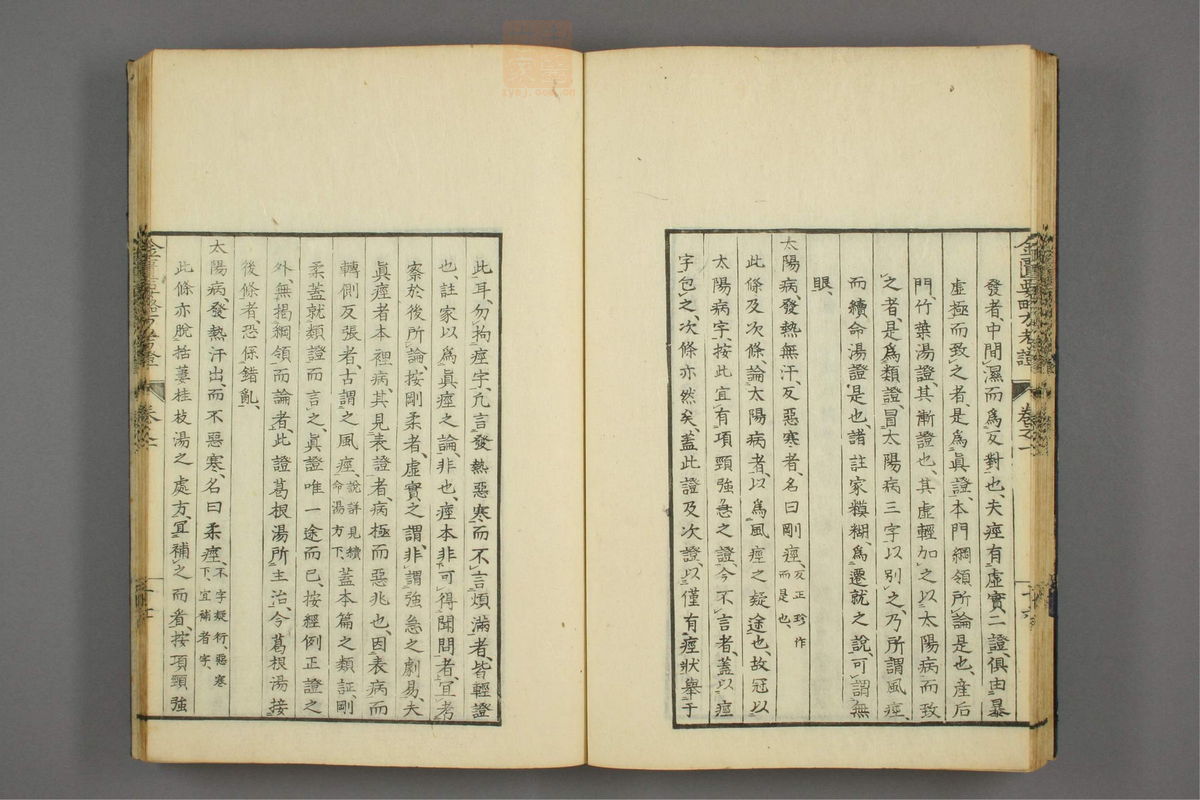 發者、中間濕而爲反對也、夫痙有虛實二證、俱由暴
虛極而致之者、是爲眞證、本門綱領所論是也、産后
門、竹葉湯證、其漸證也、其虛輕加之以太陽病而致
之者、是爲類證、冒太陽病三字以別之、乃所謂風痙、
而續命湯證是也、諸註家糢糊、爲遷就之說、可謂無
眼、
太陽病、發熱無汗、反惡寒者、名曰剛痙、反正珍作而是也、
此條及次條、論太陽病者、以爲風痙之疑途也、故冠以
太陽病字、按此宜有項頸強急之證、今不言者、蓋以痙
字包之、次條亦然矣、蓋此證及次證、以僅有痙狀、舉于
此耳、勿拘痙字、凢言發熱惡寒而不言煩滿者、皆輕證
也、註家以爲眞痙之論、非也、痙本非可得聞問者、宜考
察於後所論、按剛柔者、虛實之謂、非謂強急之劇易、夫
眞痙者本裡病、其見表證者、病極而惡兆也、因表病而
轉側反張者、古謂之風痙、說詳見續命湯方下、蓋本篇之類証、剛
柔蓋就類證而言之、眞證唯一途而已、按經例正證之
外無揭綱領而論者、此證葛根湯所主治、今葛根湯接
後條者、恐係錯亂、
太陽病、發熱汗出、而不惡寒、名曰柔痙、不字疑衍、惡寒下、宜補者字、
此條亦脫栝蔞桂枝湯之處方、宜補之而看、按項頸強
金匱要略方考證
卷之一